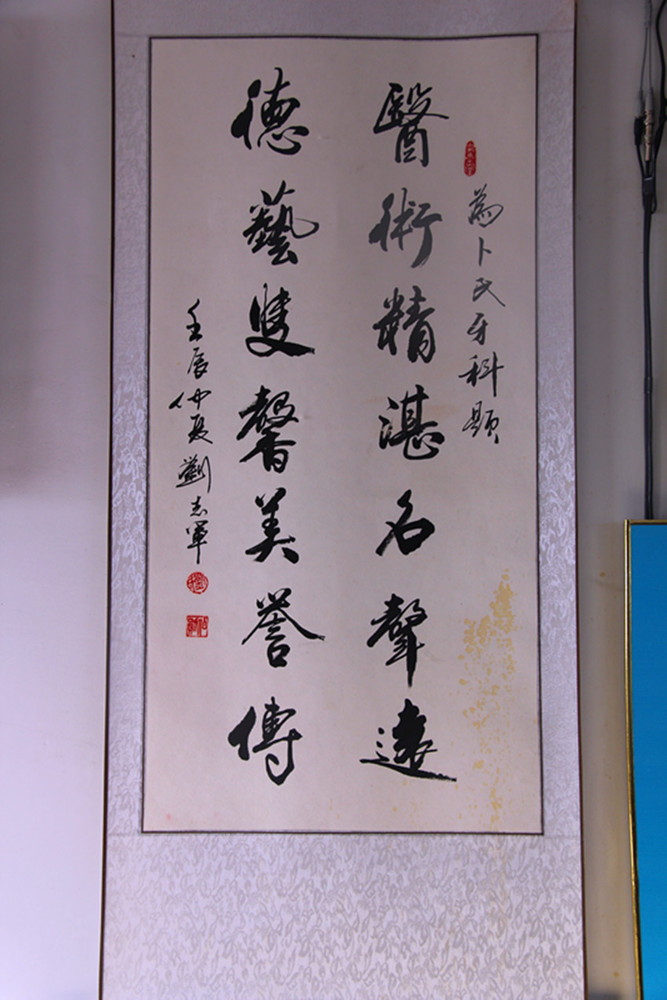 為卜氏牙科題
醫術精湛名聲遠
德藝雙馨美譽傳
壬辰仲夏劉志軍